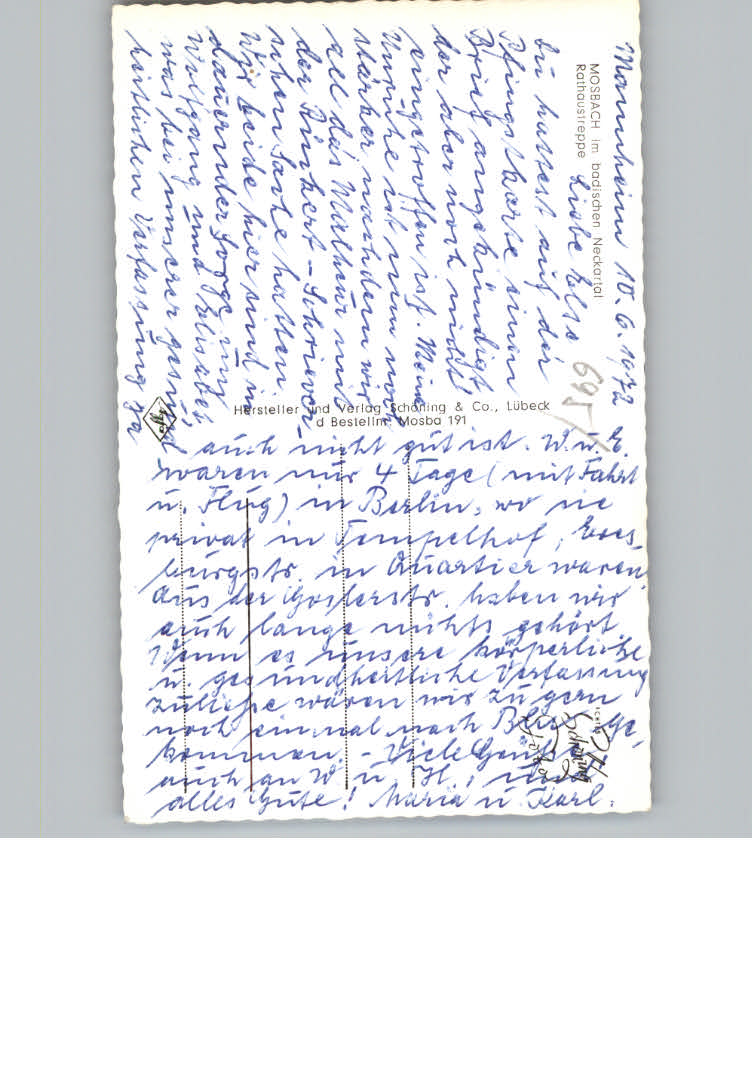 Mannheim 10. 6. 1972
MOSBACH im badischen Neckartal
Rathaustreppe
Liebe Else
Du hattest auf der
Pfingstkarte einen
Brief angekündigt
der aber noch nicht
eingetroffen ist. Meine
Unruhe ist nun noch
stärker nachdem wir
all das Malheur mit
der Punkert-Schriever-
schen Sache hatten
Wir beide hier sind in
dauernder Sorge um
Wolfgang und Elisabet
was bei unserer gesund
heitlichen Verfassung ja
6951
Hersteller und Verlag Schöning & Co., Lübeck
d Bestellnr. Mosba 191
auch nicht gut ist. W. u. E.
waren nur 4 Tage (mit Fahrt
u. Flug) in Berlin, wo sie
privat in Tempelhof,
burgstr. in Quartier waren
Aus der Goslerstr. haben wir
auch lange nichts gehört
Wenn es unsere körperliche
u. gesundheitliche Verfassung
zuliesse wären wir zu gern
noch einmal nach Bln ge,
kommen. - Viele Grüße
auch an W. u. H., und
alles Gute! Maria u. Karl.
Schöning
Foto